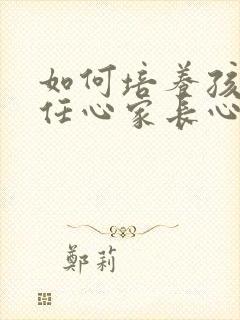 如何培养孩
任心家长心
鄭莉